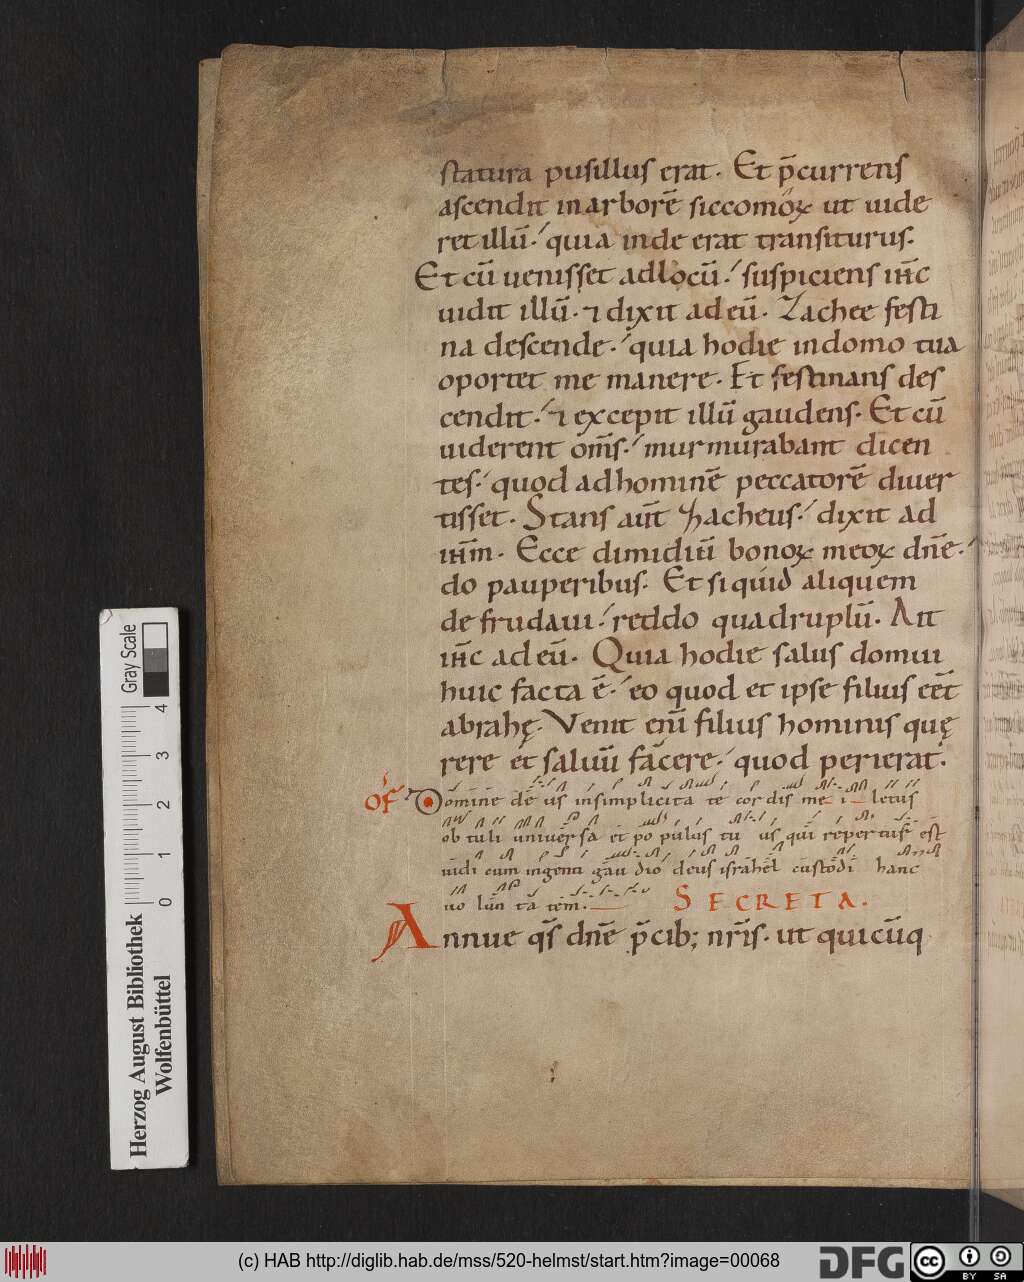 statura pusillus erat. Et p̄currens
ascendit in arborē siccomoꝝ ut uide
ret illū. quia inde erat transiturus.
Et cū uenisset ad locū. suspiciens ih̄c
uidit illū. ⁊ dixit ad eū. Zachee festi
na descende. quia hodie in domo tua
oportet me manere. Et festinans des
cendit. ⁊ excepit illū gaudens. Et cū
uiderent om̄s. murmurabant dicen
tes. quod ad hominē peccatorē diuer
tisset. Stans aūt Zacheus. dixit ad
ih̄m. Ecce dimidiū bonoꝝ meoꝝ dn̄e.
do pauperibus. Et si quid aliquem
defrudaui. reddo quadruplū. Ait
ih̄c ad eū. Quia hodie salus domui
huic facta ē. eo quod et ipse filius eēt
abrahę. Venit enī filius hominis quę
rere et saluū facere. quod perierat.
Of Domine de us in simplicita te cor dis me i letus
ob tuli uniuersa et po pulus tu us qui repertus est
uidi cum ingenti gau dio deus israhel custodi hanc
uo lun ta tem. SECRETA.
Annue qs̄ dn̄e p̄cib; nr̄is. ut quicūq
Gray Scale
0 1 2 3 4
Herzog August Bibliothek
Wolfenbüttel
(c) HAB http://diglib.hab.de/mss/520-helmst/start.htm?image=00068
DFG
cc
BY SA